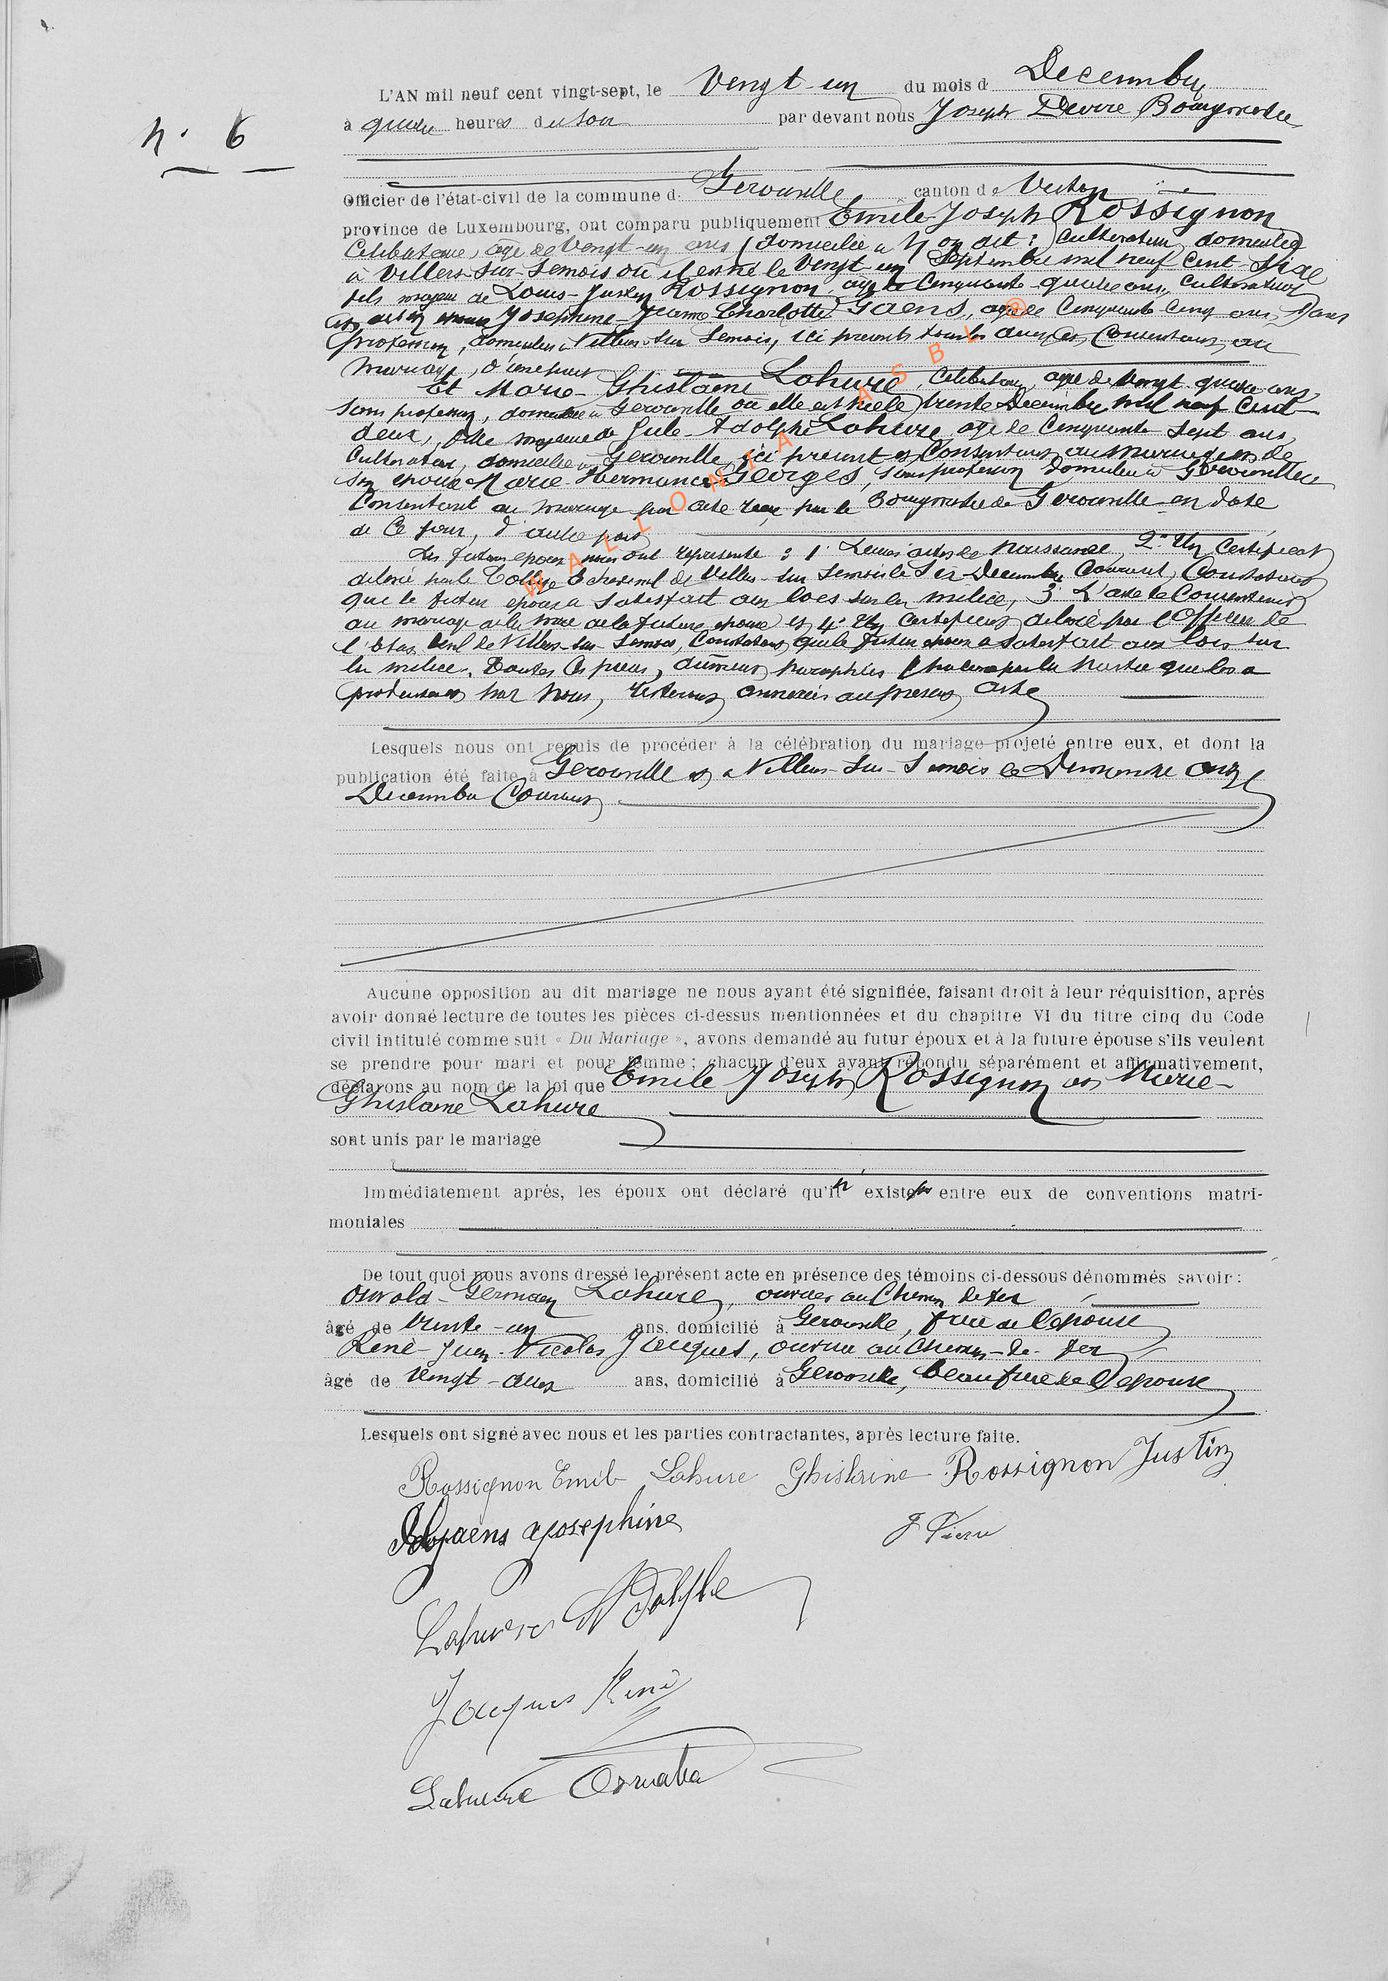 L'AN mil neuf cent vingt-sept, le Vengt-un du mois d Decembre
à quatre heures du soir par devant nous Joseph Bourgmestre
N° 6
Officier de l'état-civil de la commune d. Gerouville canton de Virton
province de Luxembourg, ont comparu publiquement Emile-Joseph Rossignon
Celibataire, age de Vengt-un ans, (domicilie a N on dit:) Cultivateur, domicilie
a Villers-sur-Semois ou il est né le Vengt-un Septembre mil neuf Cent-Six
fils majeur de Louis-Justin Rossignon age de Cinquante-quatre ans, Cultivateur
et de Josephine-Jeanne-Charlotte Gaens, agee de Cinquante Cinq ans, Sans
profession, domicilies a Villers-sur Semois, ici presents tous les deux et Consentant au
mariage, d'une part
Et Marie-Ghislaine Lahure, Celibataire, agee de Vengt quatre ans
Sans profession, domiciliee a Gerouville ou elle est née le trente Decembre mil neuf Cent
deux, fille majeure de Jule-Adolphe Lahure age de Cinquante Sept ans,
Cultivateur, domicilie a Gerouville, ici present et Consentant au mariage et de
son epouse Marie-Hermance Georges, Sans profession domiciliee a Gerouville
Consentant au mariage par acte recu par le Bourgmestre de Gerouville en date
de Ce jour, d'autre part
Les futurs epoux nous ont represente: 1° Leurs actes de Naissance, 2° Un Certificat
delivre par le College Echevinal de Villers-sur Semois le Decembre Courant, Constatant
que le futur epoux a Satisfait aux lois sur la milice, 3° L'acte de Consentement
au mariage de la mere de la future epouse et 4° Un Certificat delivre par l'Officier de
l'etat Civil de Villers-sur-Semois, Constatant que le futur epoux a Satisfait aux lois sur
la milice. Toutes Ces pieces, dument paraphées par la partie qui les a
produites et par Nous, resteront annexées au present acte
Lesquels nous ont requis de procéder à la célébration du mariage projeté entre eux, et dont la
publication été faite à Gerouville et a Villers-sur-Semois le Dimanche onze
Decembre Courant
Aucune opposition au dit mariage ne nous ayant été signifiée, faisant droit à leur réquisition, après
avoir donné lecture de toutes les pièces ci-dessus mentionnées et du chapitre VI du titre cinq du Code
civil intitulé comme suit « Du Mariage », avons demandé au futur époux et à la future épouse s'ils veulent
se prendre pour mari et pour femme ; chacun d'eux ayant répondu séparément et affirmativement,
déclarons au nom de la loi que Emile Joseph Rossignon et Marie-
Ghislaine Lahure
sont unis par le mariage
Immédiatement après, les époux ont déclaré qu'il n' existe pas entre eux de conventions matri-
moniales
De tout quoi nous avons dressé le présent acte en présence des témoins ci-dessous dénommés savoir :
Oswald-Germain Lahure, ouvrier au Chemin de fer
âgé de trente-un ans, domicilié à Gerouville, frere de l'epouse
René-Jean-Nicolas Jacques, ouvrier au Chemin-de-fer
âgé de vingt-deux ans, domicilié à Gerouville, beaufrere de l'epouse
Lesquels ont signé avec nous et les parties contractantes, après lecture faite.
Rossignon Emile Lahure Ghislaine Rossignon Justin
Gaens Josephine
Lahure Adolphe
Jacques René
Lahure Oswald
WALLONIA ASBL ®